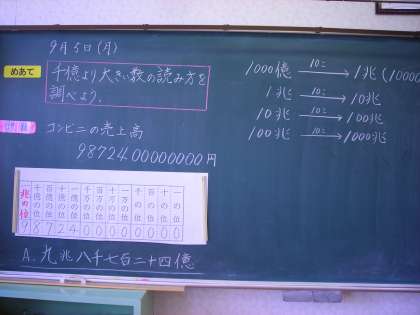 9月5日(月)
めあて
千億より大きい数の読み方を
調べよう。
コンビニの売上高
9872400000000円
兆の位 千億の位 百億の位 十億の位 一億の位 千万の位 百万の位 十万の位 一万の位 千の位 百の位 十の位 一の位
9 8 7 2 4 0 0 0 0 0 0 0 0
A. 九兆八千七百二十四億
1000億 10こ→ 1兆(10000
1兆 10こ→ 10兆
10兆 10こ→ 100兆
100兆 10こ→ 1000兆